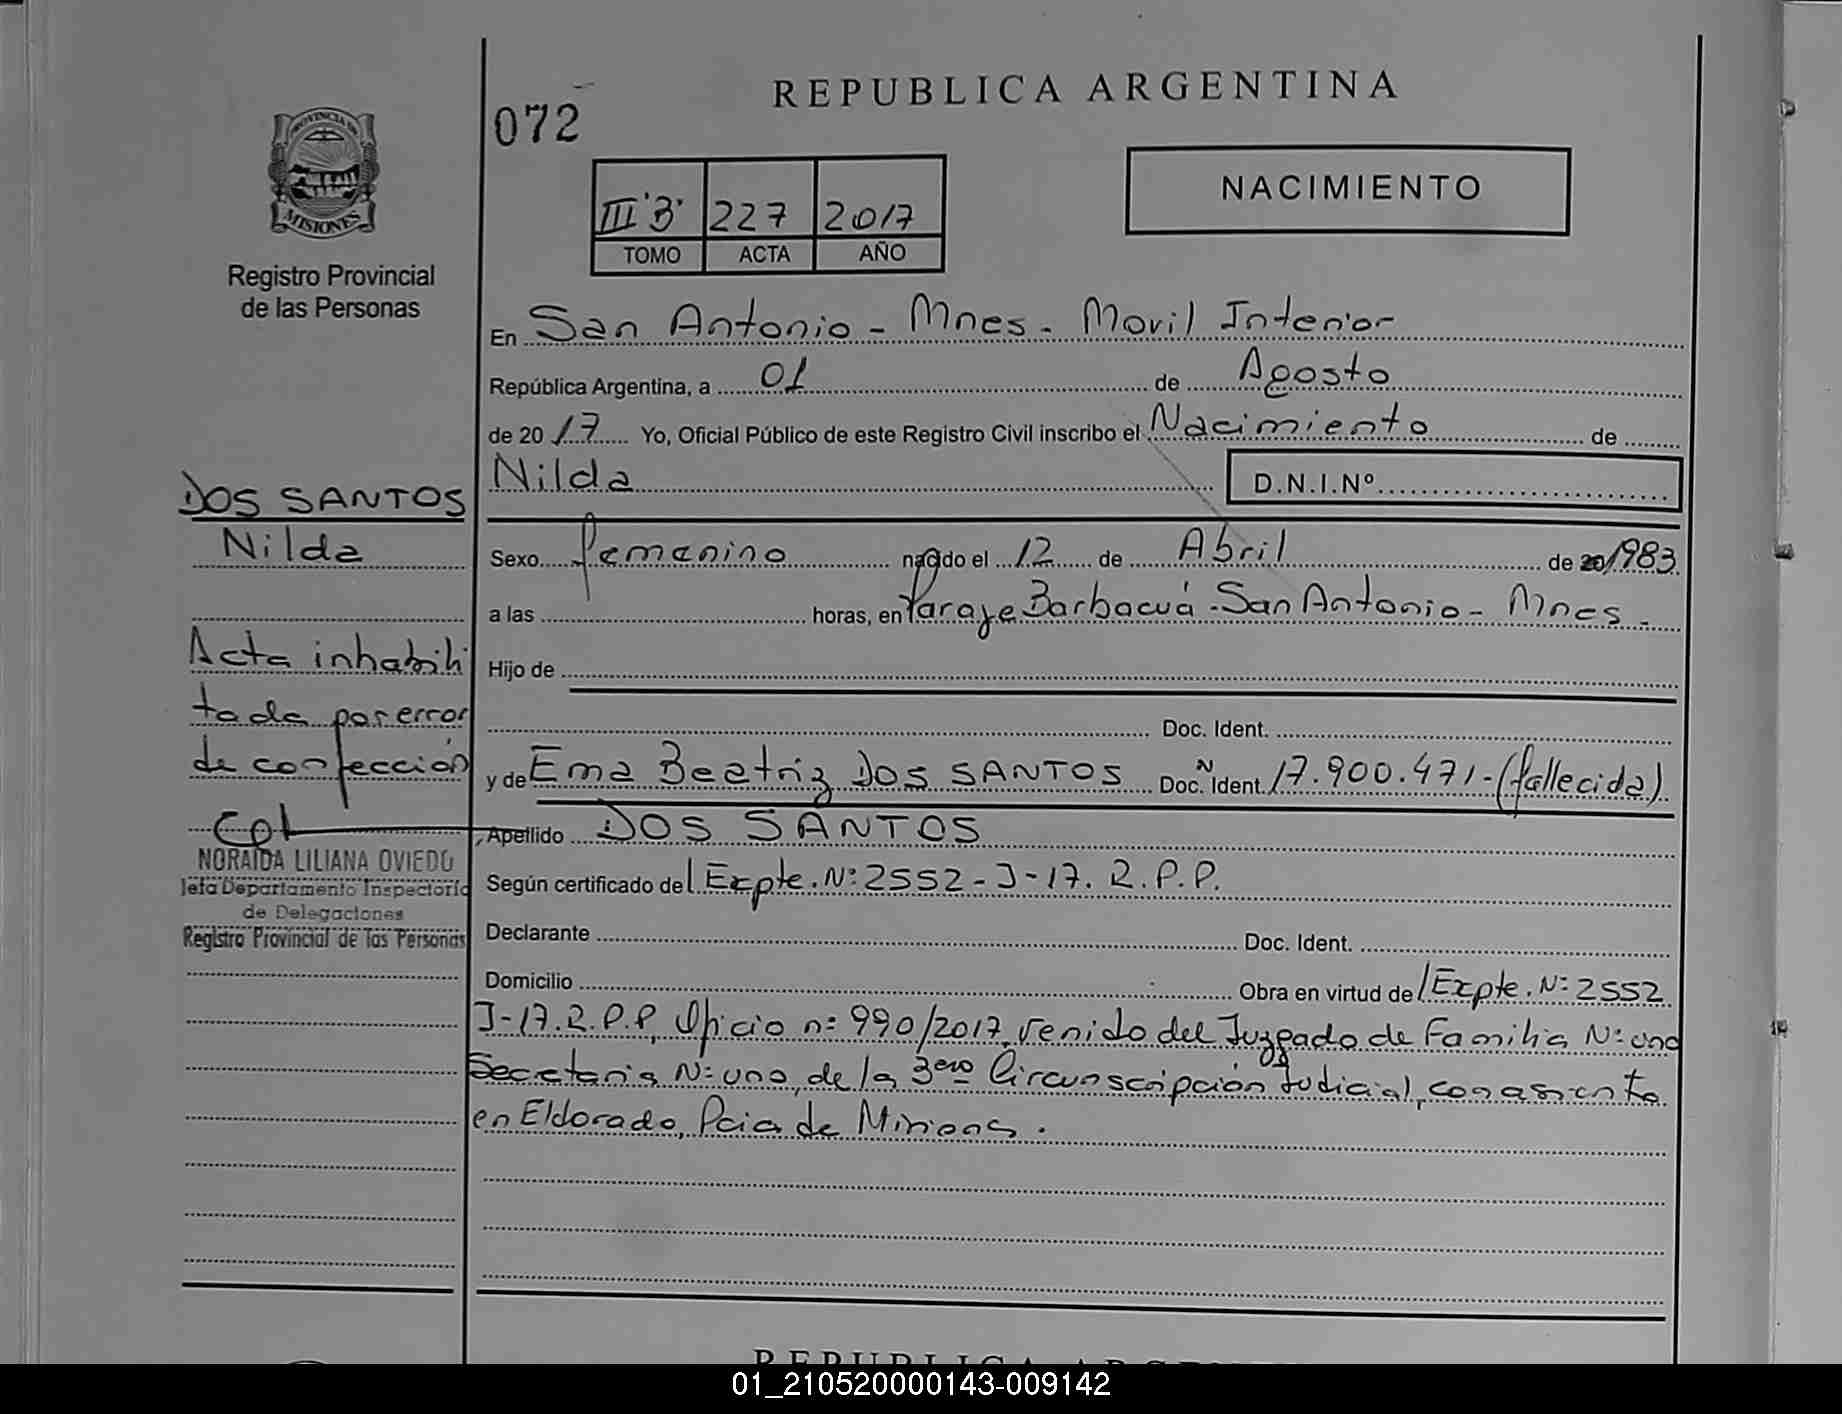 REPUBLICA ARGENTINA
072
PROVINCIA DE
MISIONES
Registro Provincial
de las Personas
NACIMIENTO
III "B" 227 2017
TOMO ACTA AÑO
En San Antonio - Mnes - Movil Interior
República Argentina, a 01 de Agosto
de 20 17 Yo, Oficial Público de este Registro Civil inscribo el Nacimiento de
Nilda D.N.I.Nº
DOS SANTOS
Nilda
Sexo femenino nacido el 12 de Abril de 20 1983
a las horas, en Paraje Barbacuá - San Antonio - Mnes -
Acta inhabili
tada por error
de confección
Hijo de
Doc. Ident.
y de Ema Beatriz DOS SANTOS Doc. N Ident. 17.900.471 - (fallecida)
Apellido DOS SANTOS
NORAIDA LILIANA OVIEDO
Jefa Departamento Inspectoria
de Delegaciones
Registro Provincial de las Personas
Según certificado del Expte. Nº 2552 - J - 17. R.P.P.
Declarante Doc. Ident.
Domicilio Obra en virtud del Expte. Nº 2552
J-17.R.P.P, Oficio nº 990/2017, venido del Juzgado de Familia Nº uno
Secretaria Nº uno, de la 3era Circunscripción Judicial, con asiento
en Eldorado, Pcia de Misiones.
REPUBLICA ARGENTINA
01_210520000143-009142